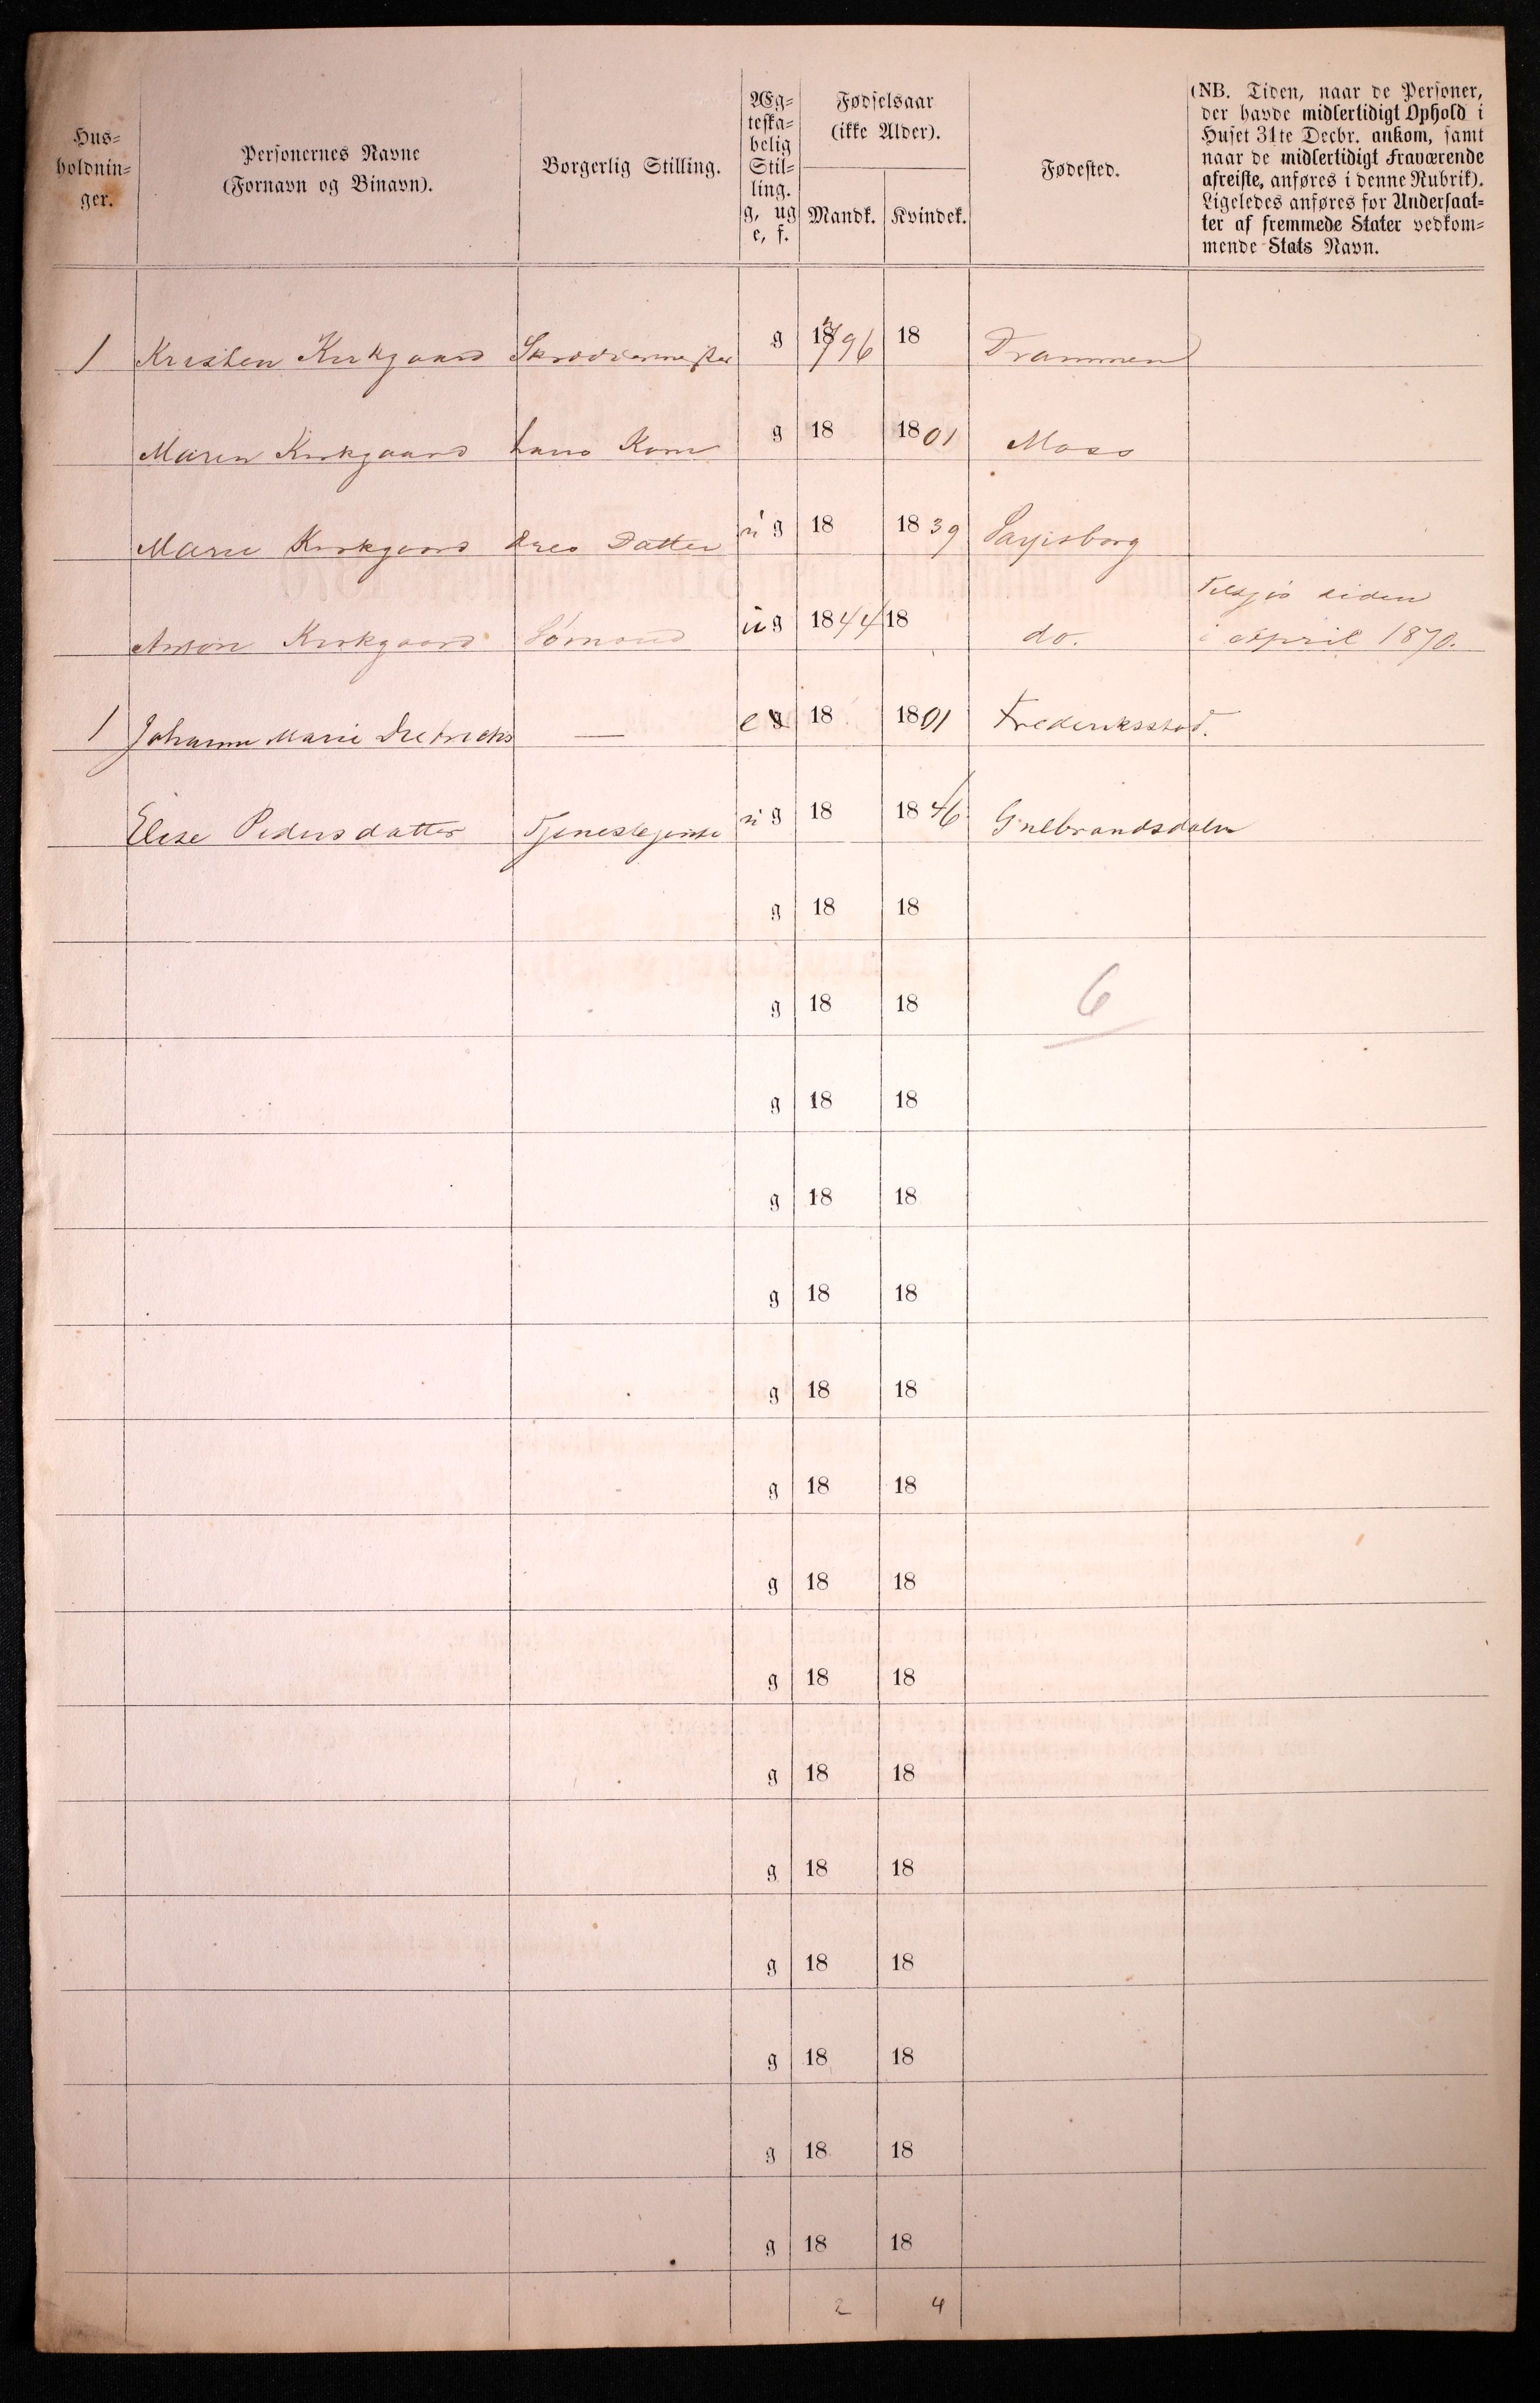 Hus-
holdnin-
ger.
Personernes Navne
(Fornavn og Binavn).
Borgerlig Stilling.
Æg-
teska-
belig
Stil-
ling.
g, ug
e, f.
Fødselsaar
(ikke Alder).
Mandk.
Kvindek.
Fødested.
(NB. Tiden, naar de Personer,
der havde midlertidigt Ophold i
Huset 31te Decbr. ankom, samt
naar de midlertidigt Fraværende
afreiste, anføres i denne Rubrik).
Ligeledes anføres for Undersaat-
ter af fremmede Stater vedkom-
mende Stats Navn.
1 Kristen Kirkgaard Skræddermester g 1796 18 Drammen
Maren Kirkgaard hans Kone g 18 1801 Moss
Marie Kirkgaard Datter ug 18 1839 Sarpsborg
Tilsjós siden
Anton Kirkgaard Sömand ug 1844 18 do. i April 1870.
1 Johanne Marie Dietrichs — e g 18 1801 Frederiksstad.
Elise Pedersdatter Tjenestepige ug 18 1846 Gulbrandsdalen
g 18 18
g 18 18 6
g 18 18
g 18 18
g 18 18
g 18 18
g 18 18
g 18 18
g 18 18
g 18 18
g 18 18
g 18 18
g 18 18
g 18 18
g 18 18
2 4